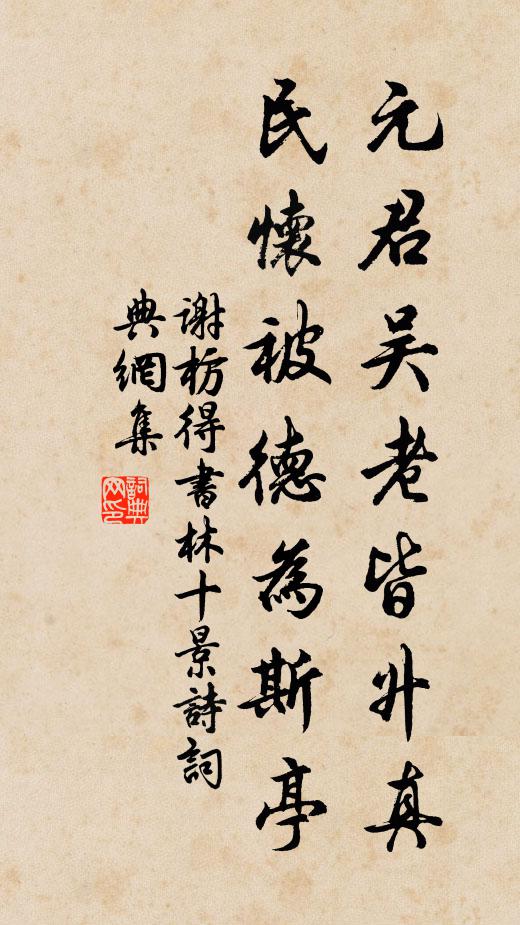 元君吴老皆升真
民懷被德為斯亭
謝枋得書林十景詩詞
典網集
詞典網印